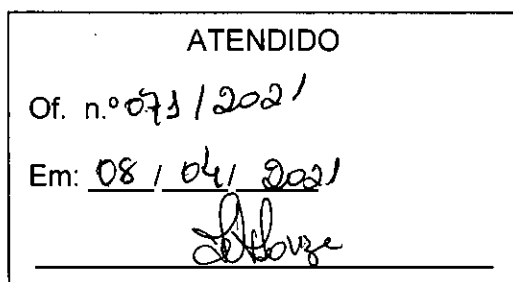 ATENDIDO
Of. n.º 071/2021
Em: 08 / 04 / 2021